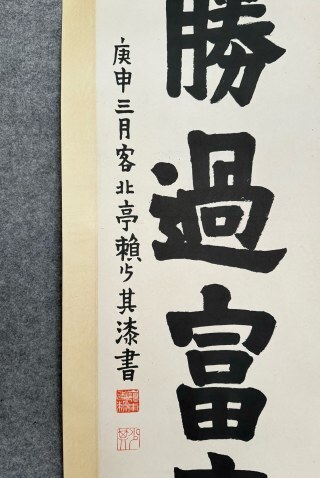 勝過富
庚申三月客北亭賴少其漆書